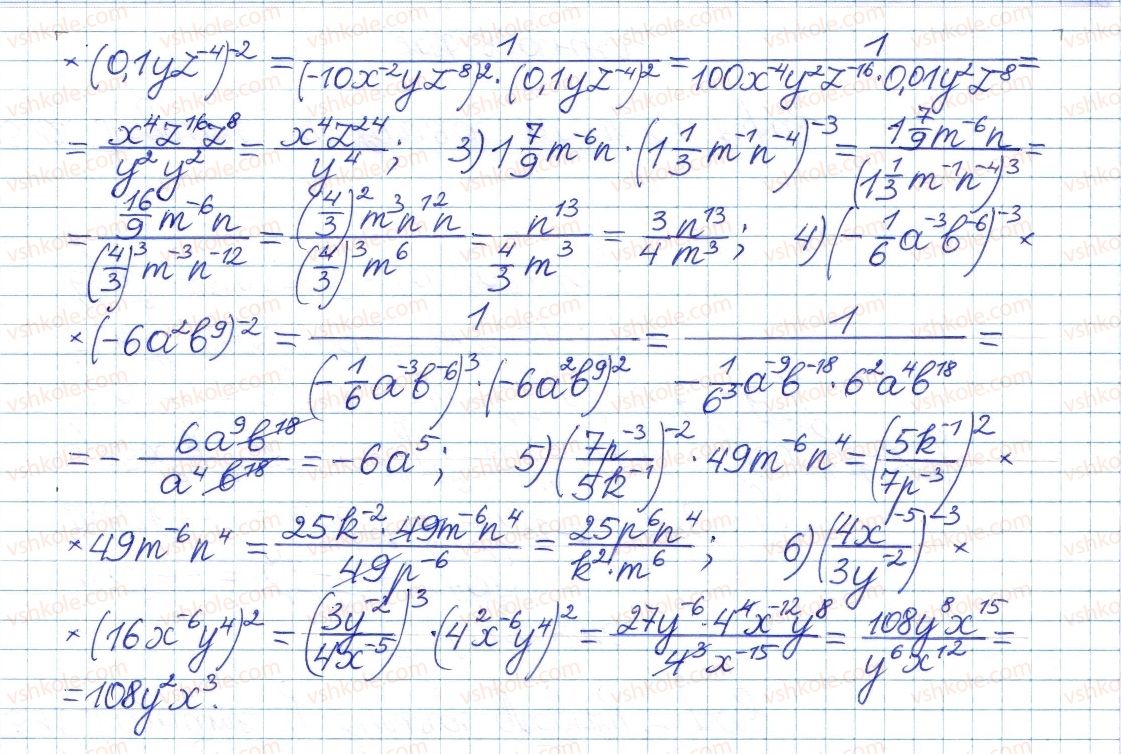 × (0,1yz⁻⁴)⁻² = 1/((-10x⁻²yz⁻⁸)² · (0,1yz⁻⁴)²) = 1/(100x⁻⁴y²z⁻¹⁶ · 0,01y²z⁻⁸) =
= x⁴z¹⁶z⁸/(y²y²) = x⁴z²⁴/y⁴; 3) 1 7/9 m⁻⁶n · (1 1/3 m⁻¹n⁻⁴)⁻³ = 1 7/9 m⁻⁶n/(1 1/3 m⁻¹n⁻⁴)³ =
= 16/9 m⁻⁶n/((4/3)³m⁻³n⁻¹²) = (4/3)²m³n¹²n/((4/3)³m⁶) = n¹³/(4/3 m³) = 3n¹³/4m³; 4) (-1/6 a⁻³b⁻⁶)⁻³ ×
× (-6a²b⁹)⁻² = 1/((-1/6 a⁻³b⁻⁶)³ · (-6a²b⁹)²) = 1/(-1/6³ a⁻⁹b⁻¹⁸ · 6²a⁴b¹⁸) =
= - 6a⁹b¹⁸/(a⁴b¹⁸) = -6a⁵; 5) (7p⁻³/5k⁻¹)⁻² · 49m⁻⁶n⁴ = (5k⁻¹/7p⁻³)² ×
× 49m⁻⁶n⁴ = 25k⁻² · 49m⁻⁶n⁴/(49p⁻⁶) = 25p⁶n⁴/(k² · m⁶); 6) (4x⁻⁵/3y⁻²)⁻³ ×
× (16x⁻⁶y⁴)² = (3y⁻²/4x⁻⁵)³ · (4²x⁻⁶y⁴)² = 27y⁻⁶ · 4⁴x⁻¹²y⁸/(4³x⁻¹⁵) = 108y⁸x¹⁵/(y⁶x¹²) =
= 108y²x³.
vshkole.com